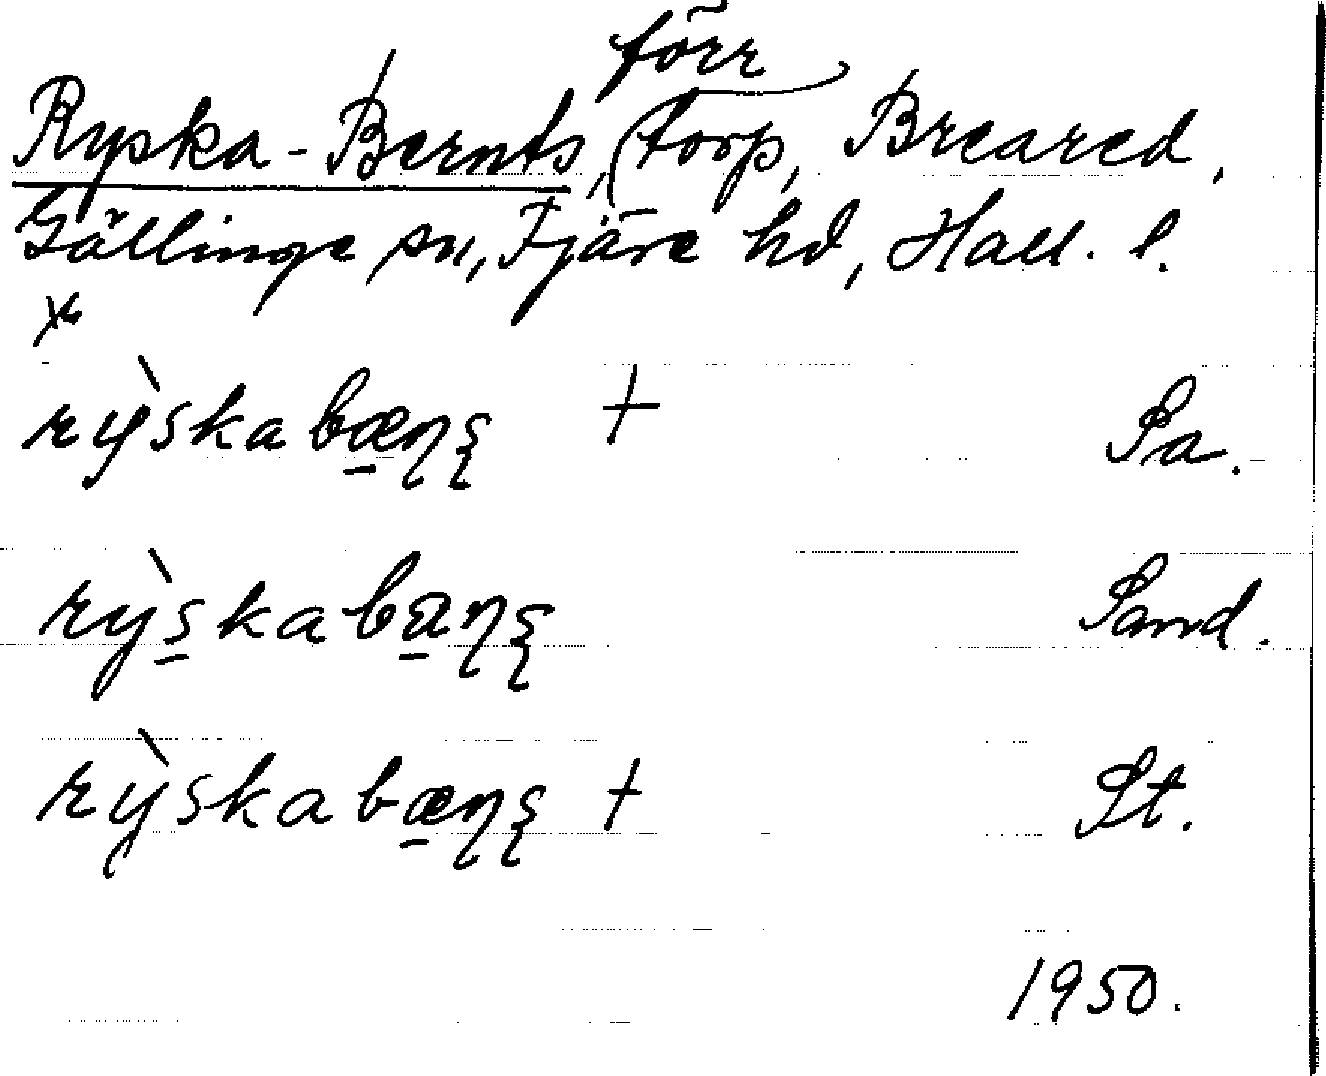 förr
Ryska-Bernts, torp, Breared,
Gällinge sn, Fjäre hd, Hall. l.
x
rỳskabæ̱ɳʂ + Sa.
rỳs̱kaba̱ɳʂ Sand.
rỳskabæ̱ɳʂ + St.
1950.